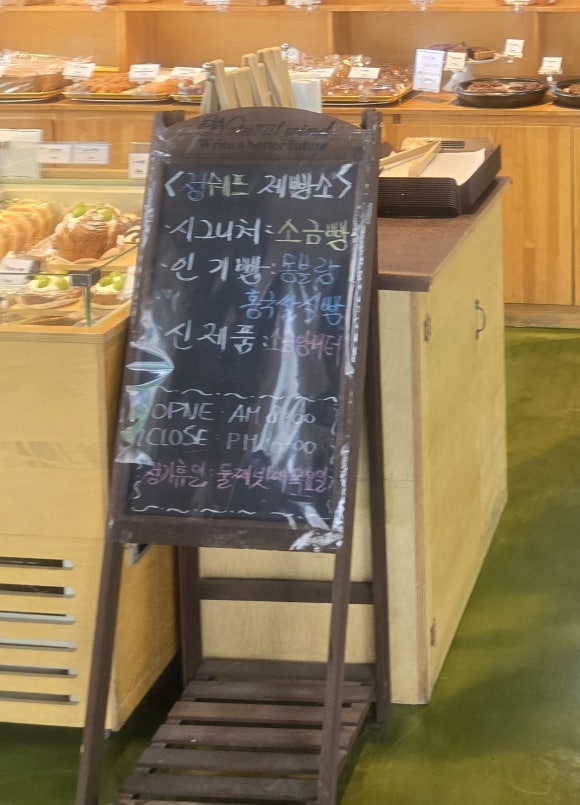 Natural wind
Write a better future
<정쉐프 제빵소>
·시그니처:소금빵
·인기빵:몽블랑
홍국쌀식빵
·신제품:
OPNE AM
CLOSE PM
정기휴일: 둘째넷째목요일